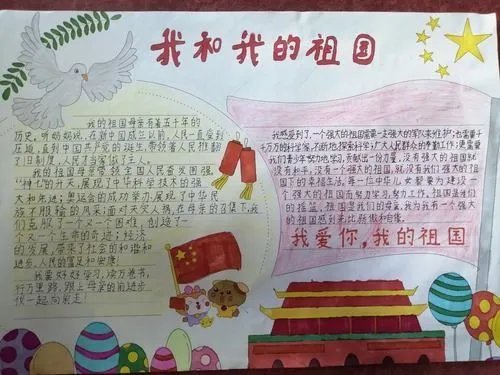 我和我的祖国
我的祖国母亲有着五千年的
历史。听奶奶说，在新中国成立以前，人民一直受到
压迫，直到中国共产党的诞生，带领着人民推翻
了旧制度，人民才当家做了主人。
我的祖国母亲带领全国人民奋发图强。
"神七"的升天，展现了中华科学技术的强
大和先进；奥运会的成功举办，展现了中华民
族不服输的风采；面对天灾人祸，在母亲的召集下，我
们克服了一个又一个困难，创造了一
个又一个生命的奇迹；经济
的发展，带来了社会的和谐和
进步、人民的富足和安康！
我要好好学习，读万卷书，
行万里路，跟上母亲的前进步
伐一起向前走！
我感受到了，一个强大的祖国需要一支强大的军队来维护；也需要千
千万万的科学家，不断地探索科学；广大人民群众的辛勤工作；更需要
我们青少年努力地学习，贡献出一份力量，没有强大的祖国就
没有和平，没有一个强大的祖国，就没有我们强大的祖
国下的幸福生活。每一位中华儿女都要为建设一
个强大的祖国而努力学习，努力工作。祖国是我们
的摇篮，祖国是我们的骨肉，我为我有一个强大
的祖国感到无比骄傲和自豪。
我爱你，我的祖国